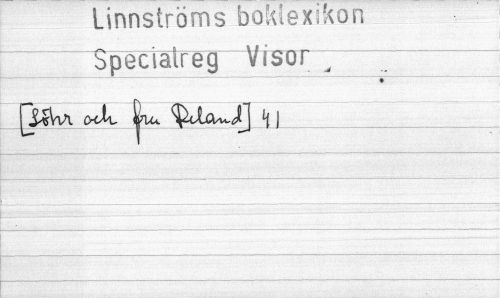 Linnströms boklexikon
Specialreg Visor
[Löhr och fru Reland] 41